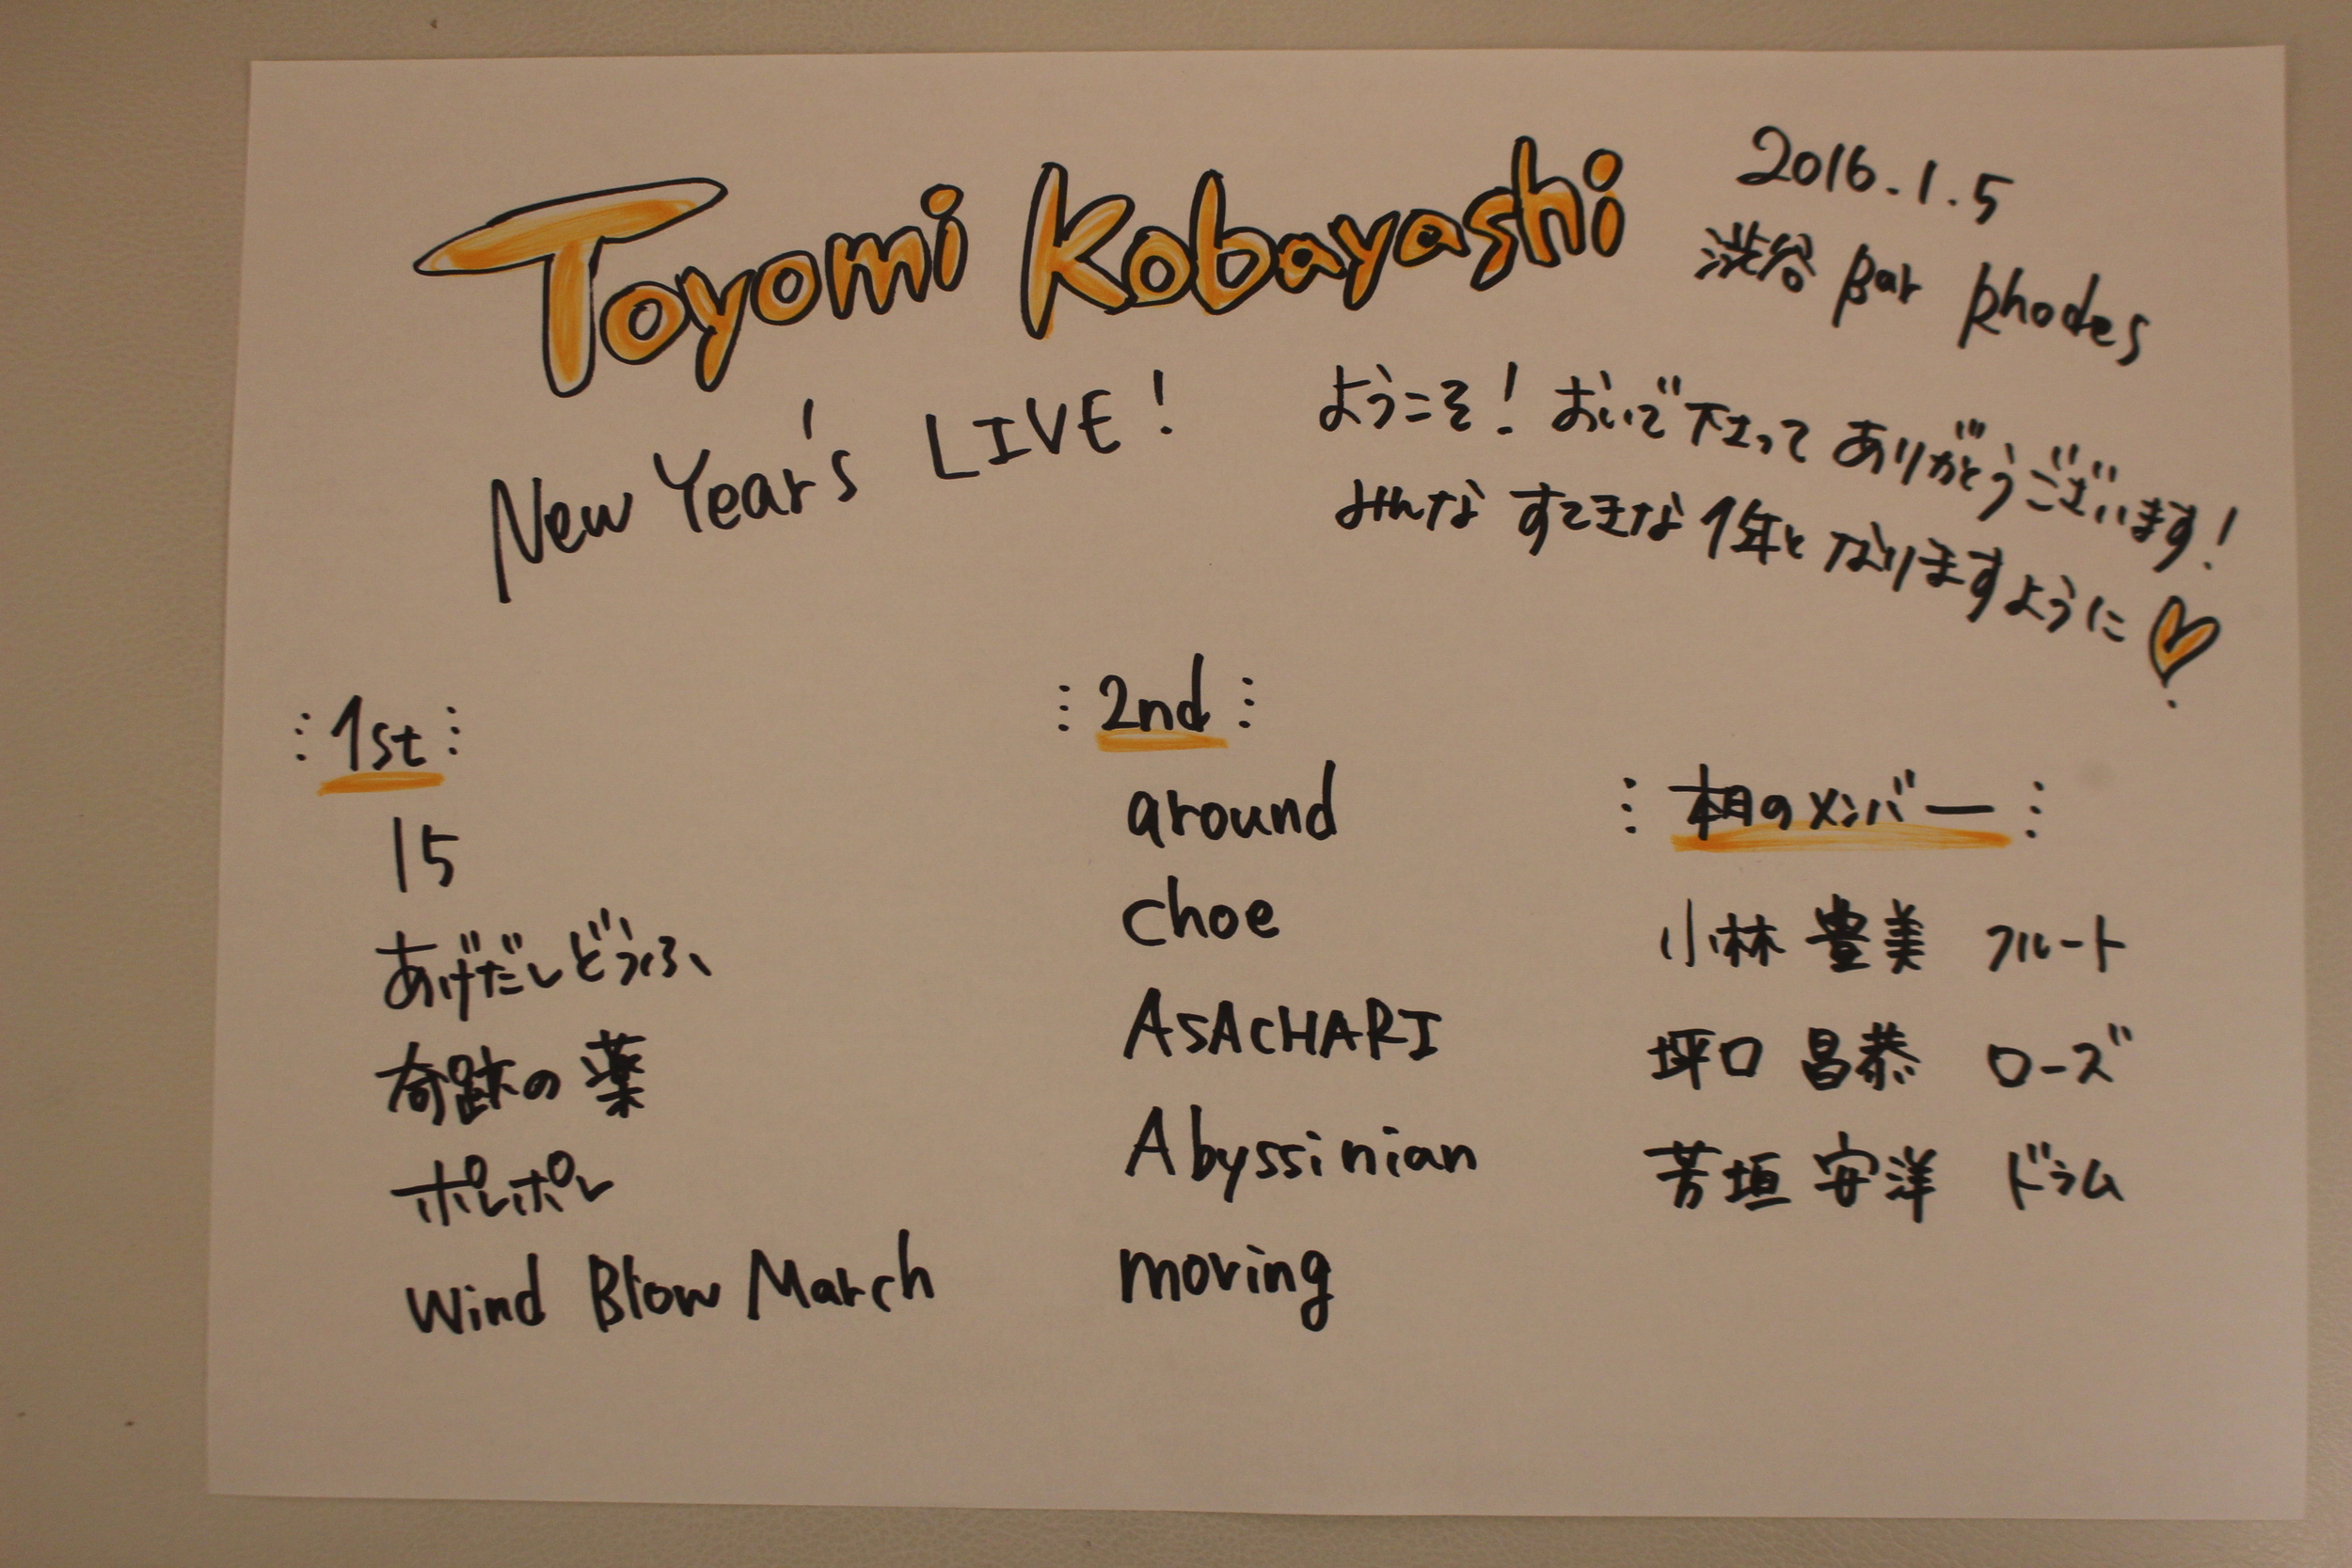 Toyomi Kobayashi
2016.1.5
渋谷 Bar Rhodes
New Year's LIVE!
ようこそ! おいで下さって ありがとうございます!
みんな すてきな 1年と なりますように
1st
15
あげだしどうふ
奇跡の薬
ポレポレ
Wind Blow March
2nd
around
choe
ASACHARI
Abyssinian
moving
本日のメンバー
小林 豊美 フルート
坪口 昌恭 ローズ
芳垣 安洋 ドラム